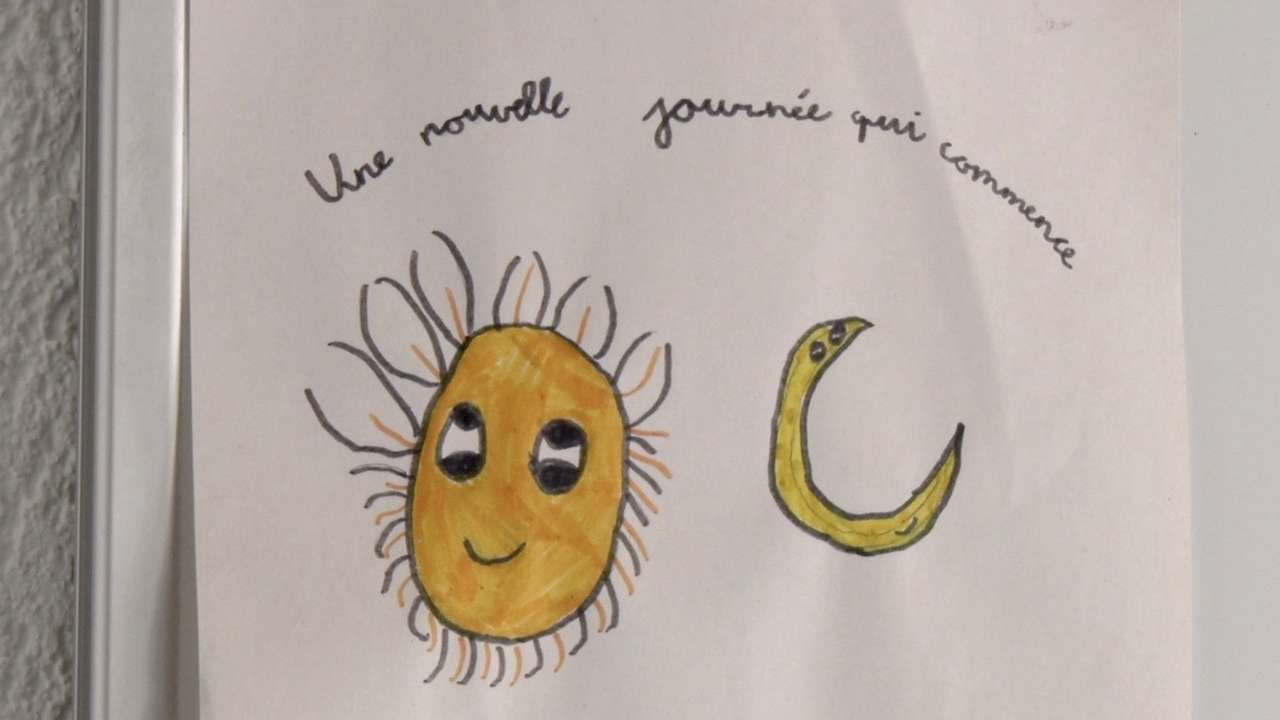 Une nouvelle journée qui commence